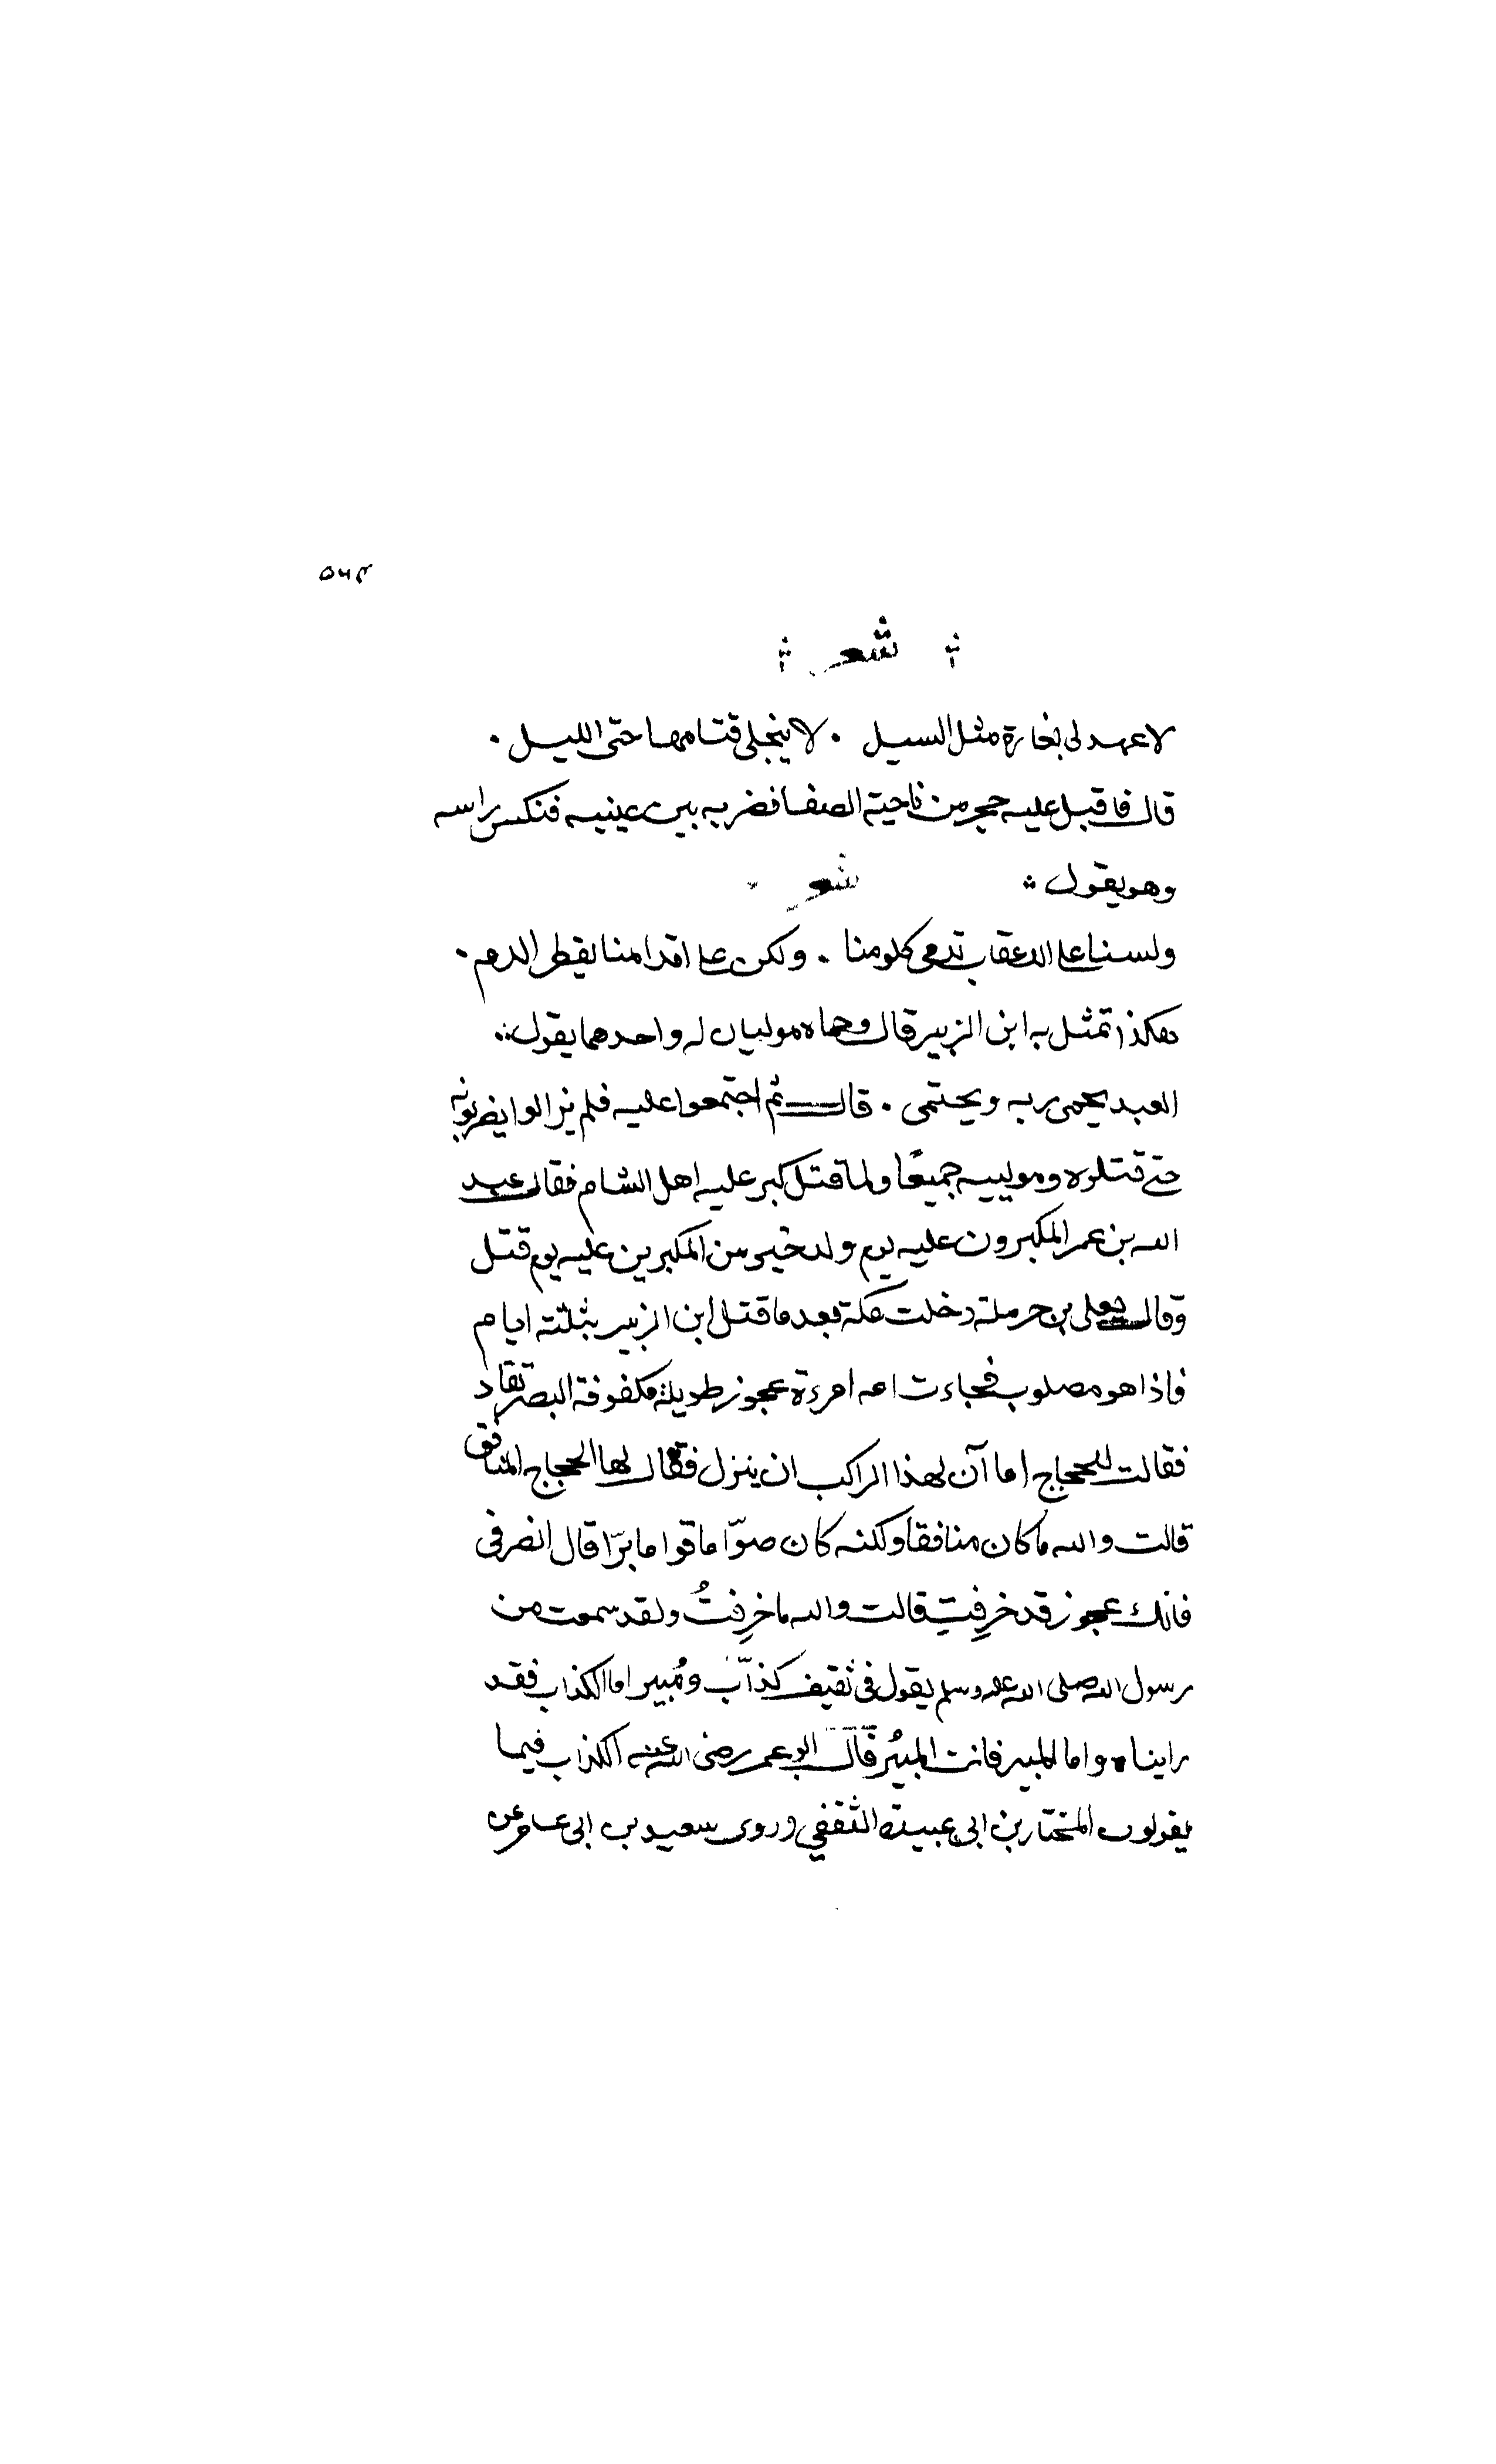 شعر
لا عهد لى بغارة مثل السيل . لا ينجلى قتامها حتى الليل .
قال فاقبل عليه حجر من ناحية الصفا فضربه بين عينيه فنكس راسه
وهو يقول شعر
ولسنا على الاعقاب تدمى كلومنا . ولكن على اقدامنا يقطر الدم .
هكذا تمثل به ابن الزبير قال وحماه موليان له واحدهما يقول
العبد يحمى ربه ويحتمى . قال ثم اجتمعوا عليه فلم يزالوا يضربونه
حتى قتلوه ومولييه جميعًا ولما قتل كبر عليه اهل الشام فقال عبد
الله بن عمر المكبرون عليه يوم ولد خير من المكبرين عليه يوم قتل
وقال يعلى بن حرملة دخلت مكة بعد ما قتل ابن الزبير بثلثة ايام
فاذا هو مصلوب فجاءت امه امرءة عجوز طويلة مكفوفة البصر تقاد
فقالت للحجاج اما آن لهذا الراكب ان ينزل فقال لها الحجاج المنافق
قالت والله ما كان منافقا ولكنه كان صوّاما قواما برّا قال انصرفى
فانك عجوز قد خرِفتِ قالت والله ما خرِفتُ ولقد سمعت من
رسول الله صلى الله عليه وسلم يقول فى ثقيف كذّاب ومُبير اما الكذاب فقد
رايناه واما المبير فانت المبيُر قال ابو عمر رضى الله عنه الكذاب فيما
يقولون المختار بن ابى عبيدة الثقفي وروى سعيد بن ابى عامر عن